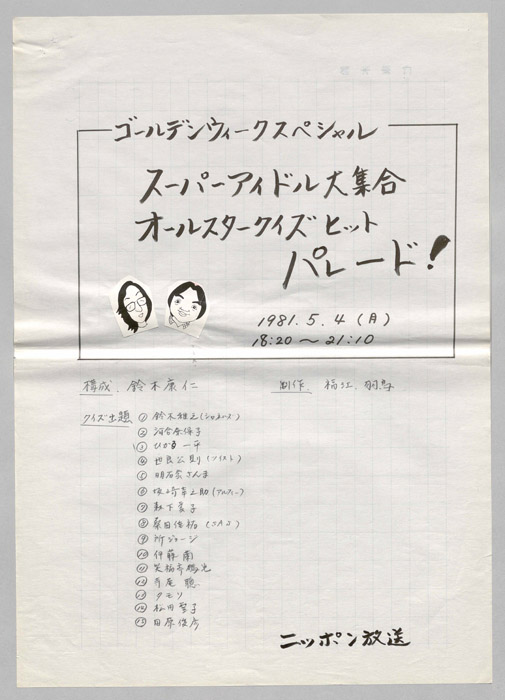 ゴールデンウィークスペシャル
スーパーアイドル大集合
オールスタークイズヒット
パレード!
1981.5.4(月)
18:20〜21:10
構成、鈴木康仁
制作、福江、羽鳥
クイズ出題 ① 鈴木雅之(シャネルズ)
② 河合奈保子
③ ひかる一平
④ 世良公則(ツイスト)
⑤ 明石家さんま
⑥ 坂崎幸之助(アルフィー)
⑦ 薮下晨子
⑧ 桑田佳祐(SAS)
⑨ 所ジョージ
⑩ 伊藤蘭
⑪ 笑福亭鶴光
⑫ 寺尾聰
⑬ タモリ
⑭ 松田聖子
⑮ 田原俊彦
ニッポン放送